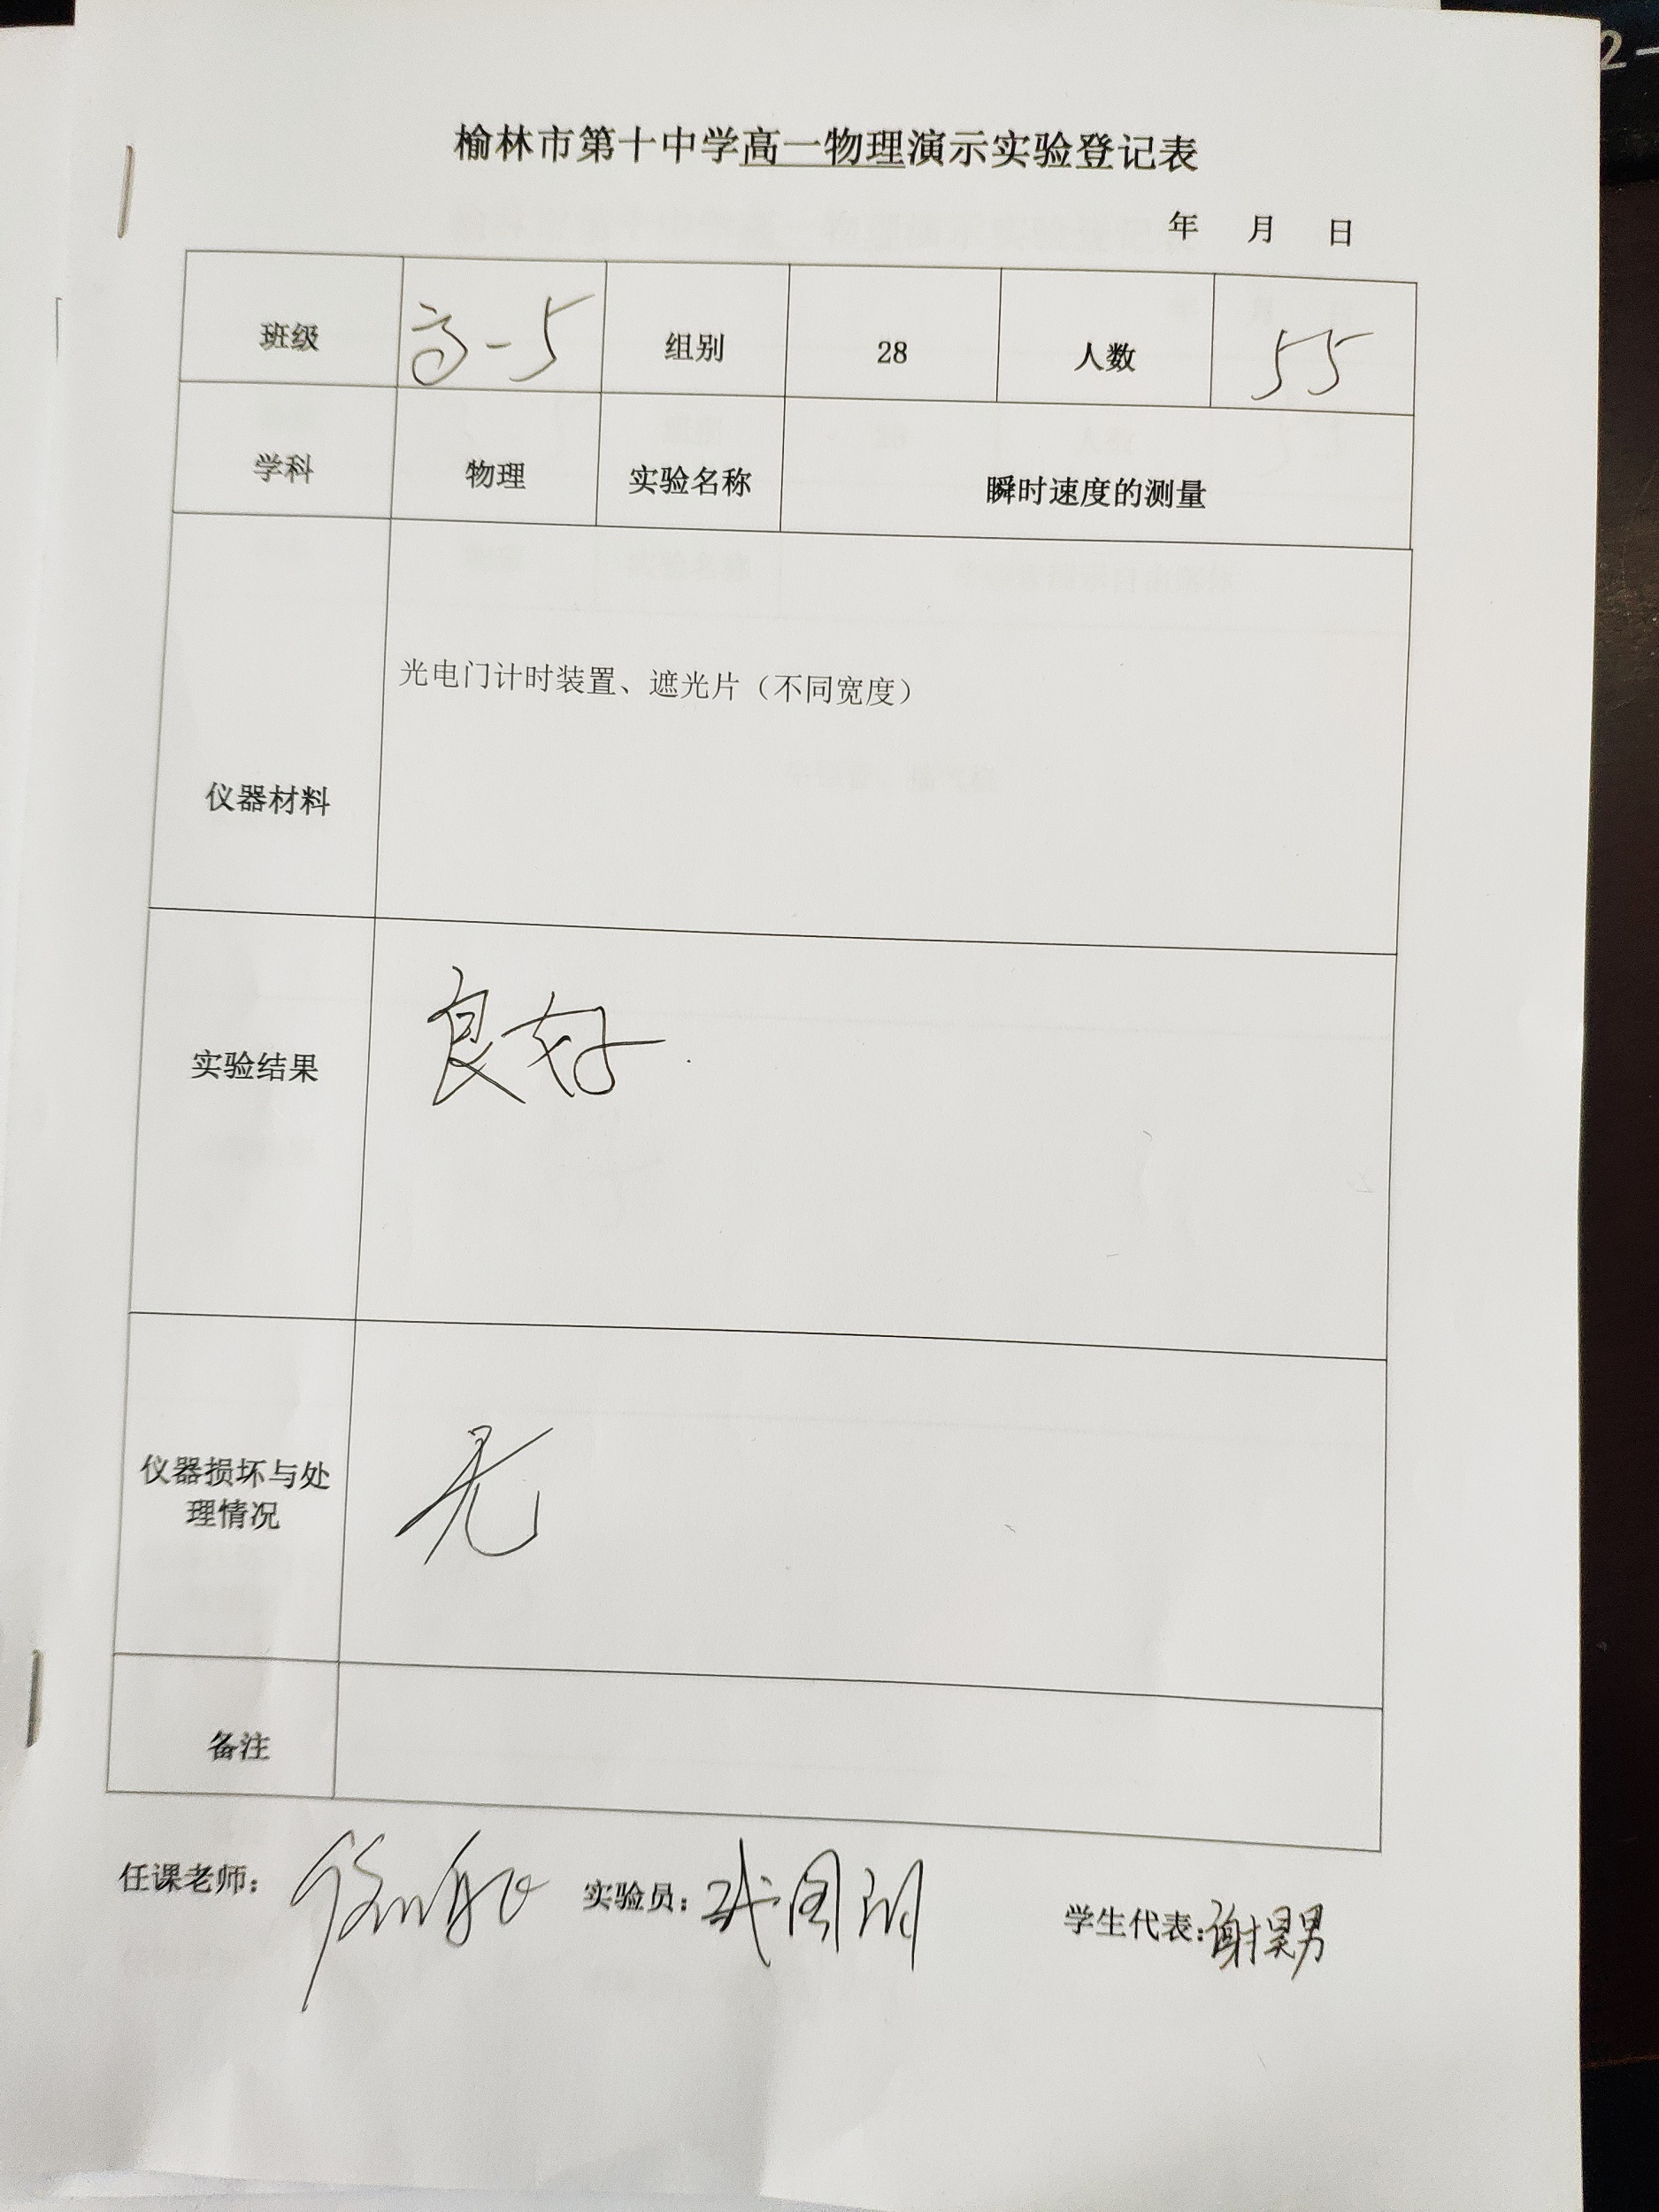 榆林市第十中学高一物理演示实验登记表
年 月 日
班级 高一5 组别 28 人数 55
学科 物理 实验名称 瞬时速度的测量
仪器材料 光电门计时装置、遮光片（不同宽度）
实验结果 良好.
仪器损坏与处
理情况 无
备注
任课老师： 实验员： 学生代表：谢昊男